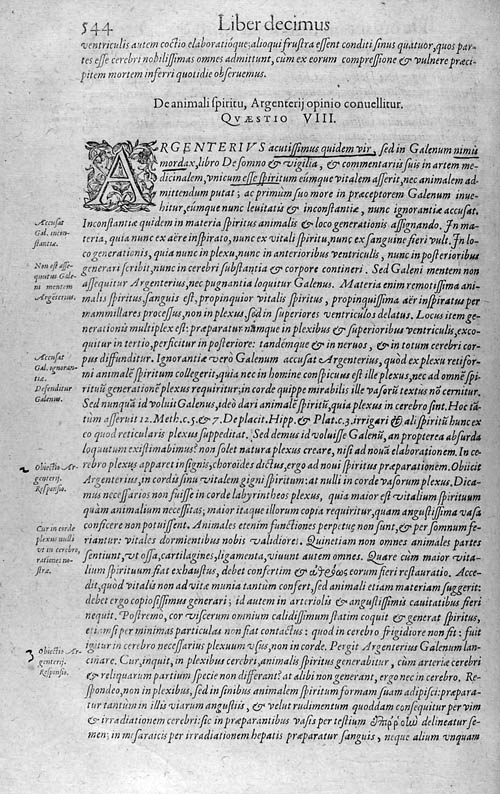 544
Liber decimus
ventriculis autem coctio elaboratióque; alioqui frustra essent conditi sinus quátuor, quos par-
tes esse cerebri nobilissimas omnes admittunt, cum ex eorum compressione & vulnere præci-
pitem mortem inferri quotidie obseruemus.
De animali spiritu, Argenterij opinio conuellitur.
QVÆSTIO VIII.
ARGENTERIVS acutissimus quidem vir, sed in Galenum nimis
mordax, libro De somno & vigilia, & commentariis suis in artem me-
dicinalem, vnicum esse spiritum eúmque vitalem asserit, nec animalem ad-
mittendum putat; ac primùm suo more in præceptorem Galenum inue-
hitur, eúmque nunc leuitatis & inconstantiæ, nunc ignorantiæ accusat.
Accusat
Gal. incon-
stantiæ.
Inconstantiæ quidem in materia spiritus animalis & loco generationis assignando. In ma-
teria, quia nunc ex aëre inspirato, nunc ex vitali spiritu, nunc ex sanguine fieri vult. In lo-
co generationis, quia nunc in plexu, nunc in anterioribus ventriculis, nunc in posterioribus
generari scribit, nunc in cerebri substantia & corpore contineri. Sed Galeni mentem non
Non est asse-
quutus Gale-
ni mentem
Argenterius.
assequitur Argenterius, nec pugnantia loquitur Galenus. Materia enim remotissima ani-
malis spiritus, sanguis est, propinquior vitalis spiritus, propinquissima aër inspiratus per
mammillares processus, non in plexus, sed in superiores ventriculos delatus. Locus item ge-
nerationis multiplex est: præparatur námque in plexibus & superioribus ventriculis, exco-
quitur in tertio, perficitur in posteriore: tandémque & in neruos, & in totum cerebri cor-
pus diffunditur. Ignorantiæ verò Galenum accusat Argenterius, quòd ex plexu retifor-
Accusat
Gal. ignoran-
tiæ.
Defenditur
Galenus.
mi animalẽ spiritum collegerit, quia nec in homine conspicuus est ille plexus, nec ad omnẽ spi-
rituũ generationẽ plexus requiritur; in corde quippe mirabilis ille vasorũ textus nõ cernitur.
Sed nunquã id voluit Galenus, ideò dari animalẽ spiritũ, quia plexus in cerebro sint. Hoc tã-
tùm asseruit 12. Meth. c. 5. & 7. De placit. Hipp. & Plat. c. 3. irrigari & ali spiritũ hunc ex
eo quod reticularis plexus suppeditat. Sed demus id voluisse Galenũ, an propterea absurda
loquutum existimabimus? non solet natura plexus creare, nisi ad nouã elaborationem. In ce-
rebro plexus apparet insignis, choroides dictus, ergo ad noui spiritus præparationem. Obiicit
2 Obiectio Ar-
genterij.
Responsio.
Argenterius, in cordis sinu vitalem gigni spiritum: at nulli in corde vasorum plexus. Dica-
mus necessarios non fuisse in corde labyrintheos plexus, quia maior est vitalium spirituum
quàm animalium necessitas; maior itaque illorum copia requiritur, quam angustissima vasa
conficere non potuissent. Animales etenim functiones perpetuæ non sunt, & per somnum fe-
Cur in corde
plexus nulli
vt in cerebro,
ratio nec no-
stra.
riantur: vitales dormientibus nobis validiores. Quinetiam non omnes animales partes
sentiunt, vt ossa, cartilagines, ligamenta, viuunt autem omnes. Quare cùm maior vita-
lium spirituum fiat exhaustus, debet confertim & ἀθρόως eorum fieri restauratio. Acce-
dit, quòd vitalis non ad vitæ munia tantùm confert, sed animali etiam materiam suggerit:
debet ergo copiosissimus generari; id autem in arteriolis & angustissimis cauitatibus fieri
nequit. Postremò, cor viscerum omnium calidissimum statim coquit & generat spiritus,
etiamsi per minimas particulas non fiat contactus: quod in cerebro frigidiore non fit: fuit
igitur in cerebro necessarius plexuum vsus, non in corde. Pergit Argenterius Galenum lan-
3 Obiectio Ar-
genterij.
Responsio.
cinare. Cur, inquit, in plexibus cerebri, animalis spiritus generabitur, cùm arteriæ cerebri
& reliquarum partium specie non differant? at alibi non generant, ergo nec in cerebro. Re-
spondeo, non in plexibus, sed in sinibus animalem spiritum formam suam adipisci: præpara-
tur tantùm in illis viarum angustiis, & velut rudimentum quoddam consequitur per vim
& irradiationem cerebri: sic in præparantibus vasis per testium ἀπόῤῥοιαν delineatur se-
men; in mesaraicis per irradiationem hepatis præparatur sanguis, neque alium vnquam